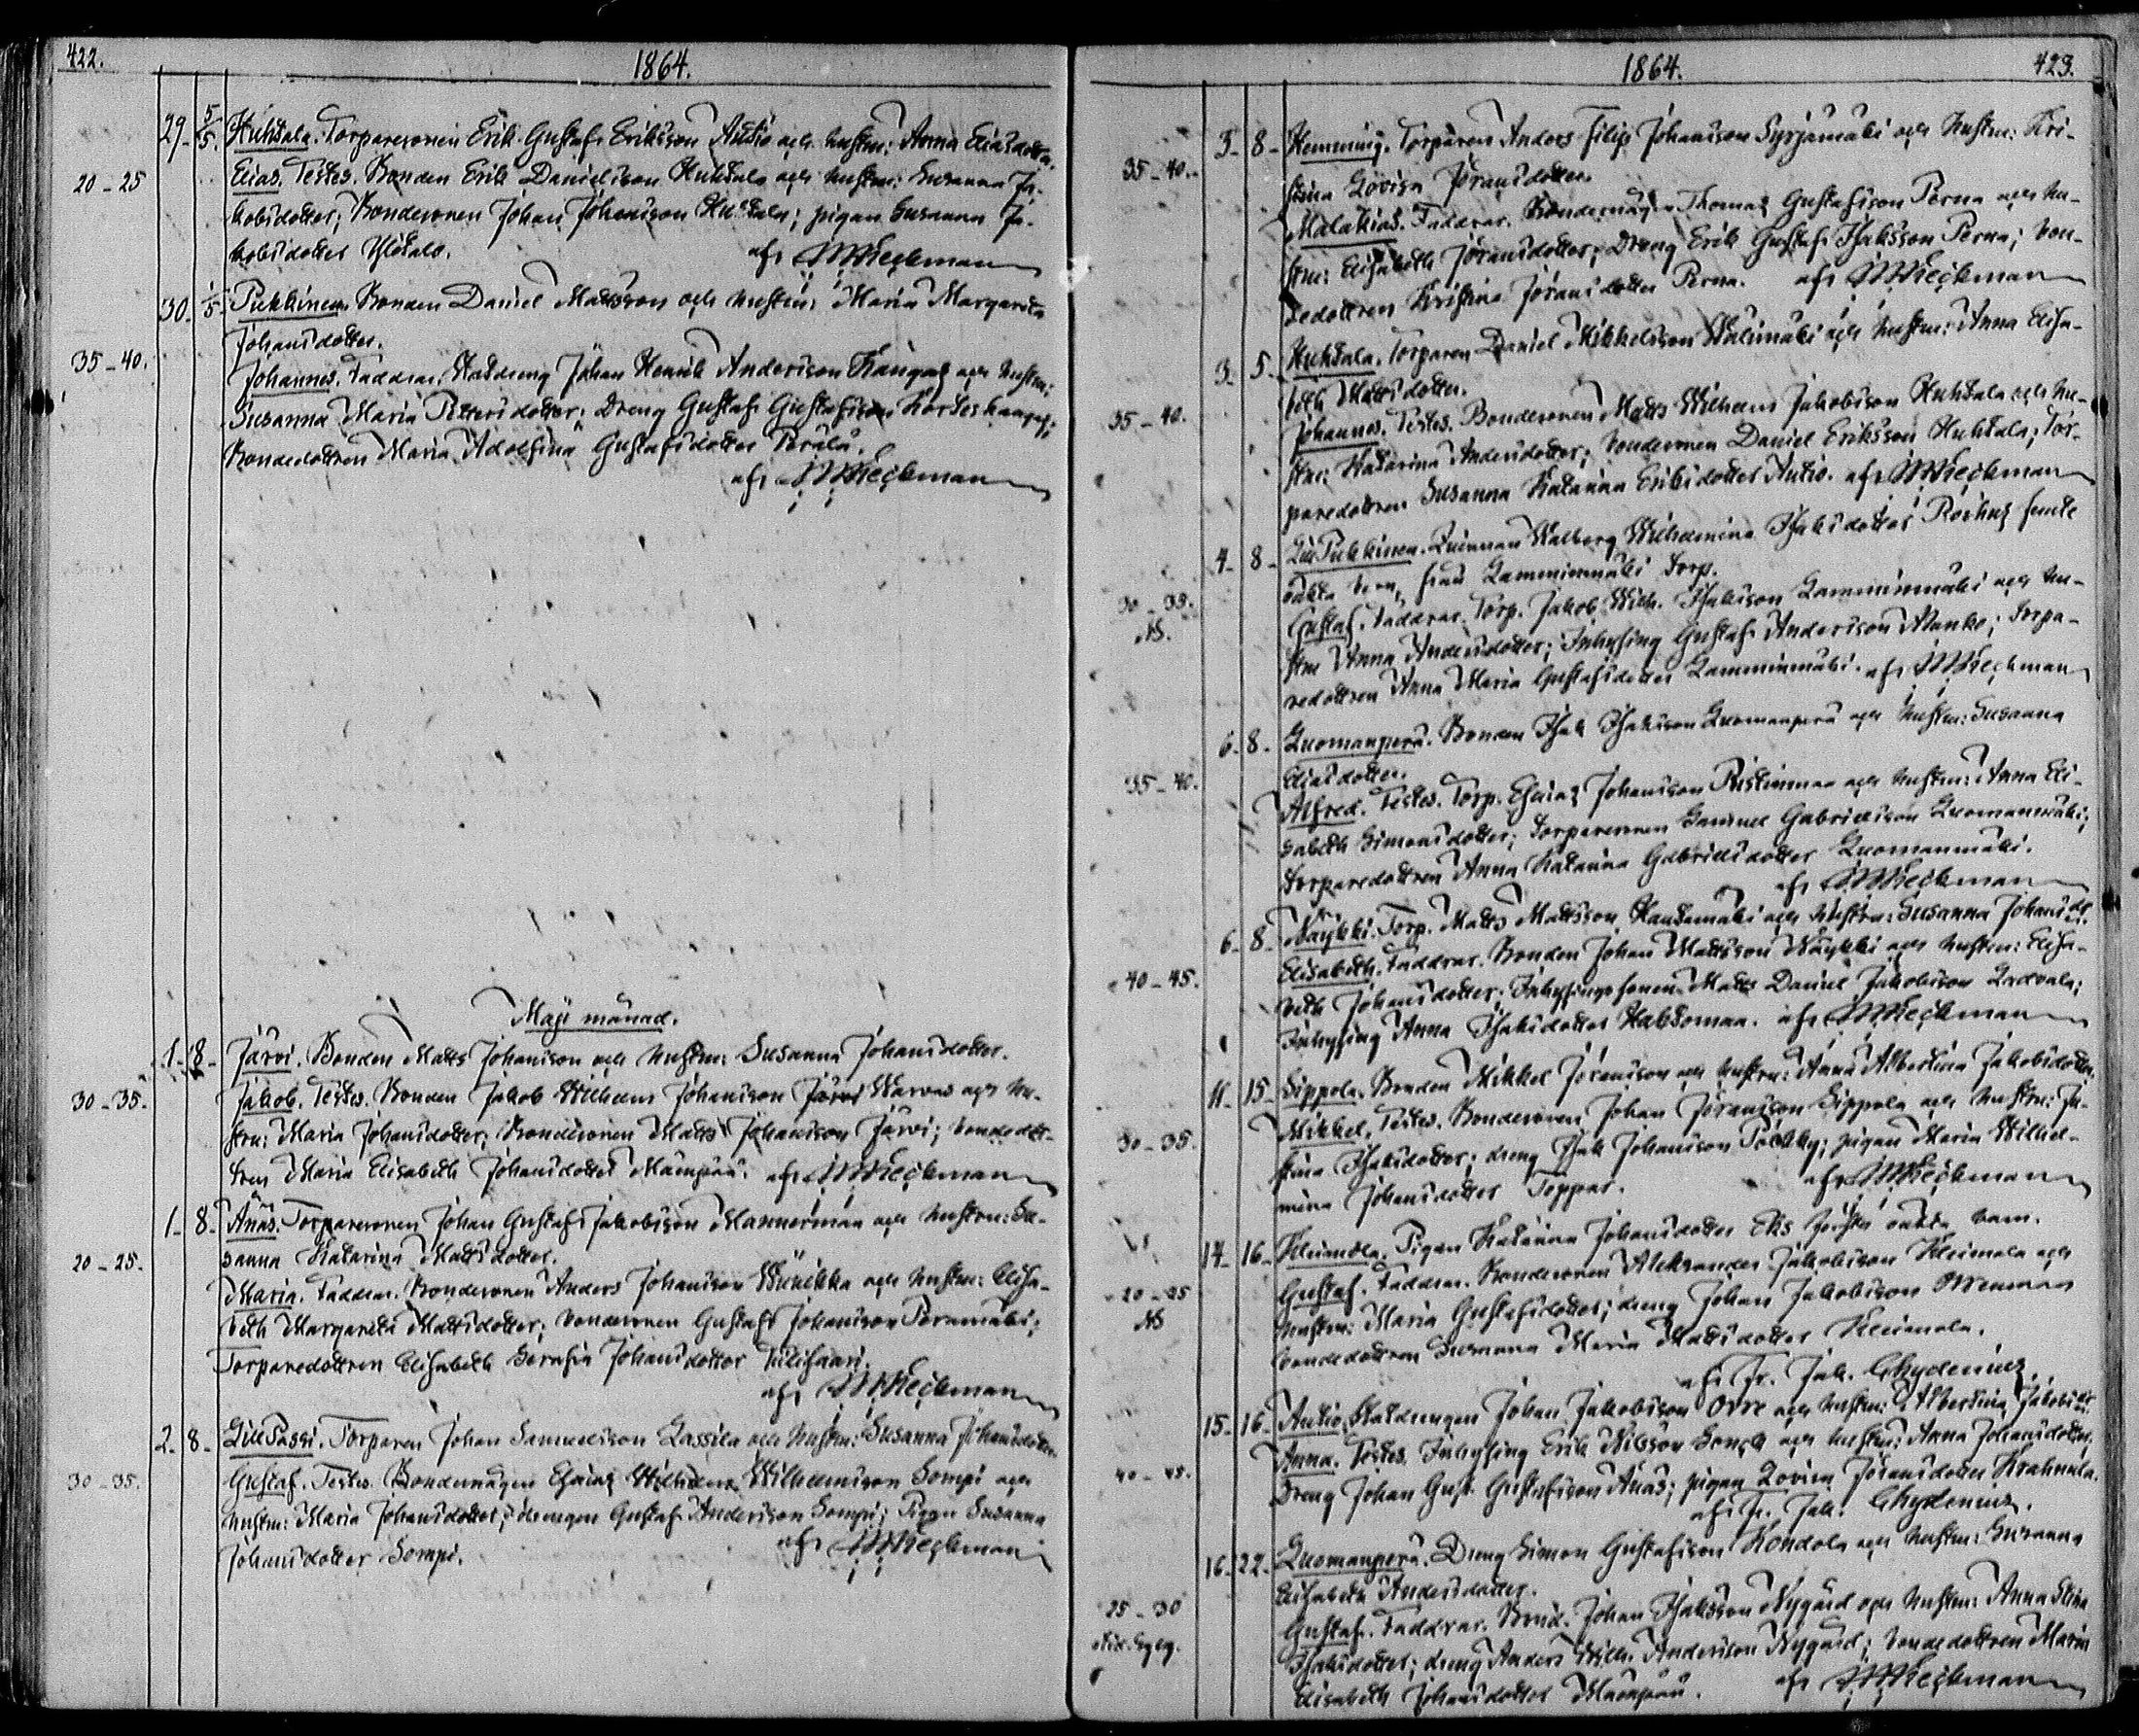 422.
1864.
29. 5/5. Huhtala. Torparesonen Erik Gustaf Eriksson Autio och hustru: Anna Eliasdotter.
20-25 Elias. Testes. Bonden Erik Danielsson Huhtala och hustru: Susanna Ja-
kobsdotter; Bondesonen Johan Johansson Huhtala; pigan Susanna Ja-
kobsdotter Ylitalo. afs
30. 1/5. Pukkinen. Bonden Daniel Mattsson och hustru: Maria Margareta
Johansdotter.
35-40. Johannes. Faddrar. Statdreng Johan Henrik Andersson Kangas och hustru:
Susanna Maria Pettersdotter; Dreng Gustaf Gustafsson Korteskangas;
Bondedottren Maria Adolfina Gustafsdotter Perälä.
afs
Maji månad.
1. 8. Järvi. Bonden Matts Johansson och hustru: Susanna Johansdotter.
30-35. Jakob. Testes. Bonden Jakob Wilhelm Johansson Järvi Warvas och hu-
stru: Maria Johansdotter; Bondesonen Matts Johansson Järvi; bondedot-
tren Maria Elisabeth Johansdotter Mäenpää. afs
1. 8. Änäs. Torparesonen Johan Gustaf Jakobsson Mannermaa och hustru: Su-
sanna Katarina Mattsdotter.
20-25. Maria. Faddrar. Bondesonen Anders Johansson och hustru: Elisa-
beth Margareta Mattsdotter; bondesonen Gustaf Johansson Peramäki;
Torparedottren Elisabeth Serafia Johansdotter Tulisaari.
afs
2. 8. LillPassi. Torparen Johan Samuelsson Lassila och hustru: Susanna Johansdotter.
30-35. Gustaf. Testes. Bondemågen Esaias Wilhelmsson Sompi och
hustru: Maria Johansdotter; drengen Gustaf Andersson Sompi; Pigan Susanna
Johansdotter Sompi. afs
1864.
423.
3. 8. Hemming. Torparen Anders Filip Johansson Syrjämäki och hustru: Kri-
35-40. stina Lovisa Jöransdotter.
Malakias. Faddrar. Bondemågen Thomas Gustafsson Perna och hu-
stru: Elisabeth Jöransdotter; Dreng Erik Gustaf Isaksson Perna; bon-
dedottren Kristina Jöransdotter Perna. afs
3. 5. Huhtala. Torparen Daniel Mikkelsson Wälimäki och hustru: Anna Elisa-
beth Mattsdotter.
35-40. Johannes. Testes. Bondesonen Matts Wilhelm Jakobsson Huhtala och hu-
stru: Katarina Andersdotter; bondesonen Daniel Eriksson Huhtala; Tor-
paredottren Susanna Katarina Eriksdotter Autio. afs
4. 8. LillPukkinen. Qvinnan Walborg Wilhelmina Isaksdotter femte
oäkta barn, från Lamminmäki torp.
Gustaf. Faddrar. Torp. Jakob Wilh. Isaksson Lamminmäki och hu-
stru Anna Andersdotter; Inhysing Gustaf Andersson Manko; torpa-
redottren Anna Maria Gustafsdotter Lamminmäki. afs
6. 8. Luomanperä. Bonden Isak Isaksson Luomanperä och hustru: Susanna
Eliasdotter.
35-40. Alfred. Testes. Torp. Esaias Johansson Ristimaa och hustru: Anna Eli-
sabeth Simonsdotter; torparesonen Samuel Gabrielsson Luomanmäki;
torparedottren Anna Katarina Gabrielsdotter Luomanmäki.
afs
6. 8. Näykki. Torp. Matts Mattsson Hautamäki och hustru: Susanna Johansdr.
40-45. Elisabeth. Faddrar. Bonden Johan Mattsson Näykki och hustru: Elisa-
beth Johansdotter; Inhysingssonen Matts Daniel Jakobsson
Inhysing Anna Isaksdotter Haldomaa. afs
11. 15. Sippola. Bonden Mikkel Jöransson och hustru: Anna Albertina Jakobsdotter.
30-35. Mikkel. Testes. Bondesonen Johan Jöransson Sippola och hustru: Ju-
stina Isaksdotter; dreng Isak Johansson pigan Maria Wilhel-
mina Johansdotter Toppar. afs
14. 16. Kleimola. Pigan Katarina Johansdotter första oäkta barn.
20-25 Gustaf. Faddrar. Bondesonen Aleksander Jakobsson Kleimola och
hustru: Maria Gustafsdotter; dreng Johan Jakobsson
bondedottren Susanna Maria Mattsdotter Kleimola.
afs Fr. Jak. Chydenius.
15. 16. Autio. Statdrengen Johan Jakobsson Orre och hustru: Albertina Jakobsdr.
40-45. Anna. Testes. Inhysing Erik Nilsson och hustru: Anna Johansdotter;
Dreng Johan Gust. Gustafsson Änäs; pigan Lovisa Jöransdotter Krahnala.
afs Fr. Jak. Chydenius.
16. 22. Luomanperä. Dreng Simon Gustafsson Kondola och hustru: Susanna
Elisabeth Andersdotter.
25-30 Gustaf. Faddrar. Bond. Johan Isaksson Nygård och hustru: Anna Stina
Isaksdotter; dreng Anders Wilh. Andersson Nygård; bondedottren Maria
Elisabeth Johansdotter Mäenpää. afs